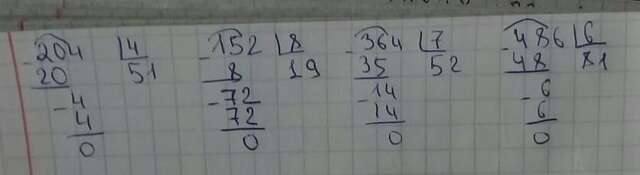 -204 |4 -152 |8 -364 |7 -486 |6
20 51 8 19 35 52 48 81
-4 -72 -14 -6
4 72 14 6
0 0 0 0